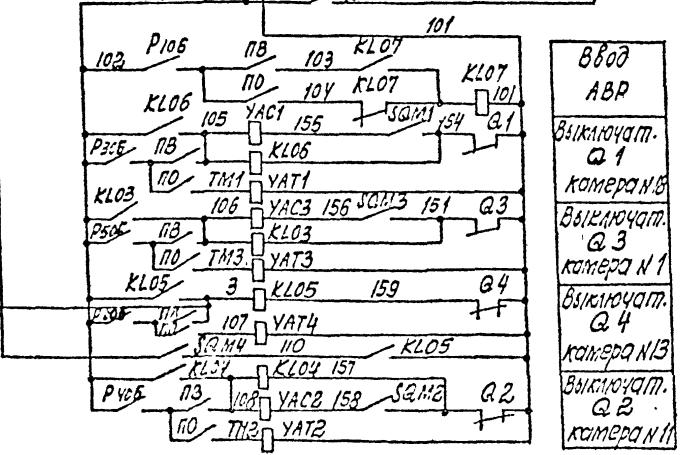 101
102 Р10Б ПВ 103 KL07
ПО 104 KL07 KL07 101
KL06 105 YAC1 155 SQM1 154 Q1
Р30Б ПВ KL06
ПО ТМ1 YAT1
KL03 106 YAC3 156 SQM3 151 Q3
Р50Б ПВ KL03
ПО ТМ3 YAT3
KL05 3 KL05 159 Q4
107 YAT4
SQM4 110 KL05
KL04 157
Р40Б ПЗ 108 YAC2 158 SQM2 Q2
ПО ТМ2 YAT2
Ввод
АВР
Выключат.
Q 1
камера N18
Выключат.
Q 3
камера N 1
Выключат.
Q 4
камера N13
Выключат.
Q 2
камера N 11